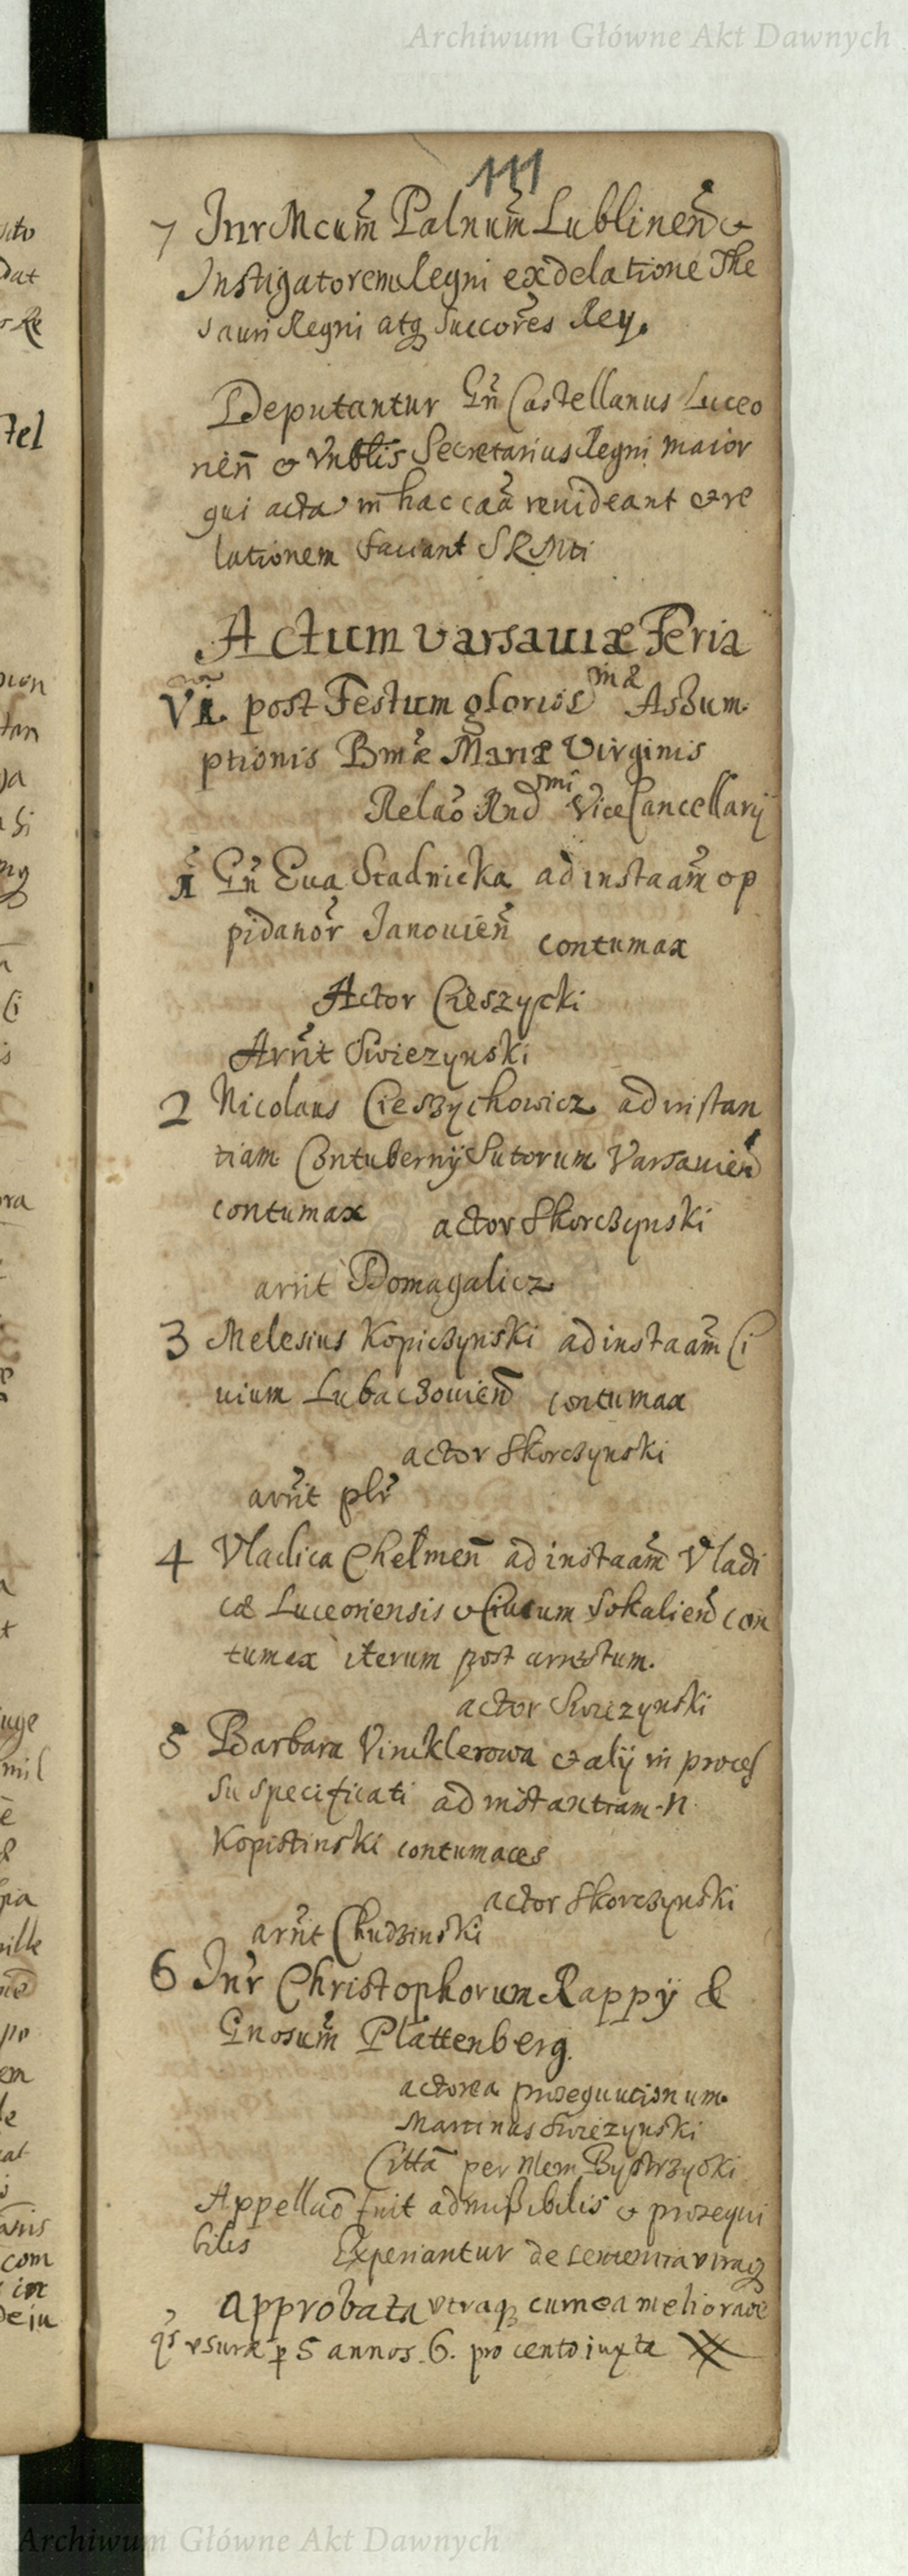 Archiwum Główne Akt Dawnych
111
7 Inr Mcum Palnum Lublinen &
Instigatorem Regni ex delatione The
sauri Regni atq succores Rey.
Deputantur Gn Castellanus Luceo
nen & Vnblis Secretarius Regni maior
qui acta in hac caa revideant et re
lationem faciant SRMti
Actum varsauiæ Feria
VI. post Festum glorios mæ Assum
ptionis Bmæ Mariæ Virginis
Relao Rnd smi ViceCancellarij
1 Gn Eua Stadnicka ad instaam op
pidanor Janouien contumax
Actor Cieszycki
Arrit Swiezynski
2 Nicolaus Cieszychowicz ad instan
tiam Contubernij Sutorum Varsauien
contumax actor Skorczynski
arrit Domagalicz
3 Melesius Kopiczynski ad instaam Ci
uium Lubaczouien contumax
actor Skorczynski
arrit plr
4 Vladica Chelmen ad instaam Vladi
cæ Luceoriensis & Ciuium Sokalien con
tumax iterum post arrestum.
actor Swiezynski
5 Barbara Vincklerowa et alij in proces
su specificati ad instantiam N
Kopistinski contumaces
actor Skorczynski
arrit Chudzinski
6 Inr Christophorum Rappy &
Gnosum Plattenberg.
actorea prosequutionum
Martinus Swiezynski
Citta per Nlem Bystrzycki
Appellao fuit admissibilis & prosequi
bilis Experiantur de sententia vtraq
approbata vtraq cum ea melioraoe
qs vsuræ p 5 annos 6. pro cento iuxta
Archiwum Główne Akt Dawnych